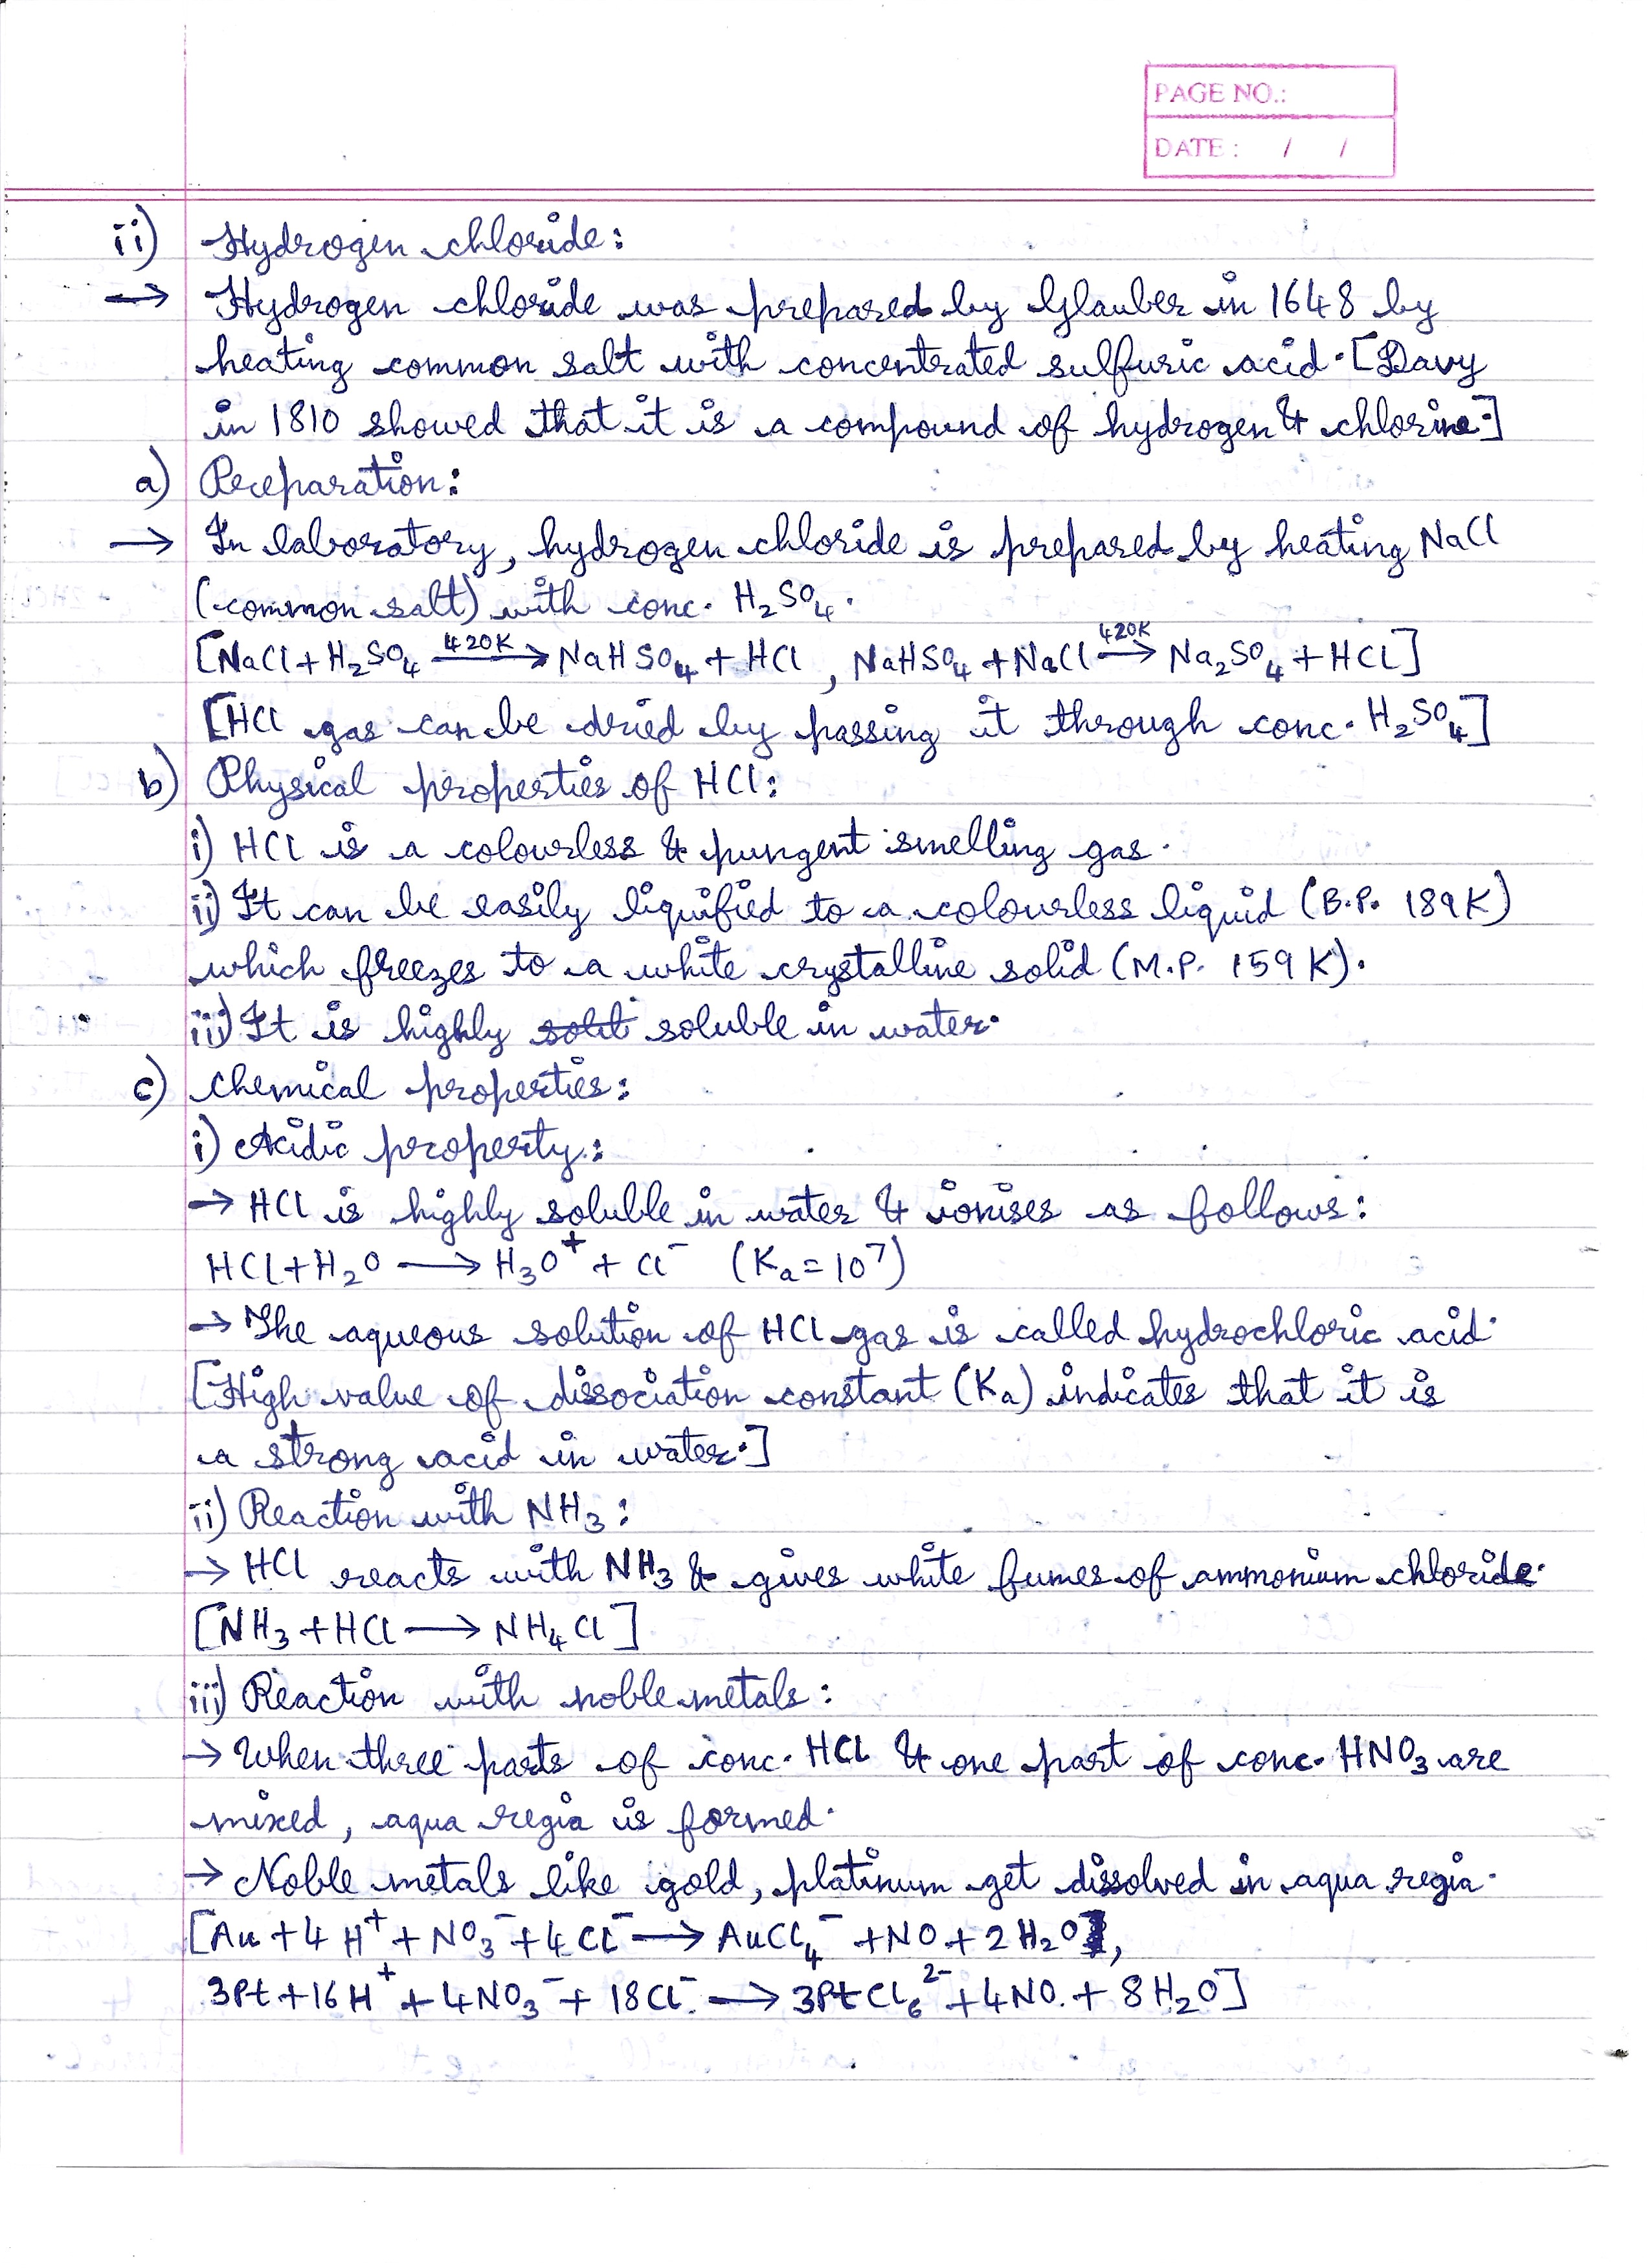 PAGE NO.:
DATE : / /
ii) Hydrogen chloride:
→ Hydrogen chloride was prepared by Glauber in 1648 by
heating common salt with concentrated sulfuric acid. [Davy
in 1810 showed that it is a compound of hydrogen & chlorine.]
a) Preparation:
→ In laboratory, hydrogen chloride is prepared by heating NaCl
(common salt) with conc. H₂SO₄.
[NaCl + H₂SO₄ —420K→ NaHSO₄ + HCl , NaHSO₄ + NaCl —420K→ Na₂SO₄ + HCl]
[HCl gas can be dried by passing it through conc. H₂SO₄]
b) Physical properties of HCl:
i) HCl is a colourless & pungent smelling gas.
ii) It can be easily liquified to a colourless liquid (B.P. 189K)
which freezes to a white crystalline solid (M.P. 159K).
iii) It is highly soluble in water.
c) Chemical properties:
i) Acidic property:
→ HCl is highly soluble in water & ionises as follows:
HCl + H₂O → H₃O⁺ + Cl⁻ (Kₐ = 10⁷)
→ The aqueous solution of HCl gas is called hydrochloric acid.
[High value of dissociation constant (Kₐ) indicates that it is
a strong acid in water.]
ii) Reaction with NH₃:
→ HCl reacts with NH₃ & gives white fumes of ammonium chloride.
[NH₃ + HCl → NH₄Cl]
iii) Reaction with noble metals:
→ When three parts of conc. HCl & one part of conc. HNO₃ are
mixed, aqua regia is formed.
→ Noble metals like gold, platinum get dissolved in aqua regia.
[Au + 4H⁺ + NO₃⁻ + 4Cl⁻ → AuCl₄⁻ + NO + 2H₂O,
3Pt + 16H⁺ + 4NO₃⁻ + 18Cl⁻ → 3PtCl₆²⁻ + 4NO + 8H₂O]